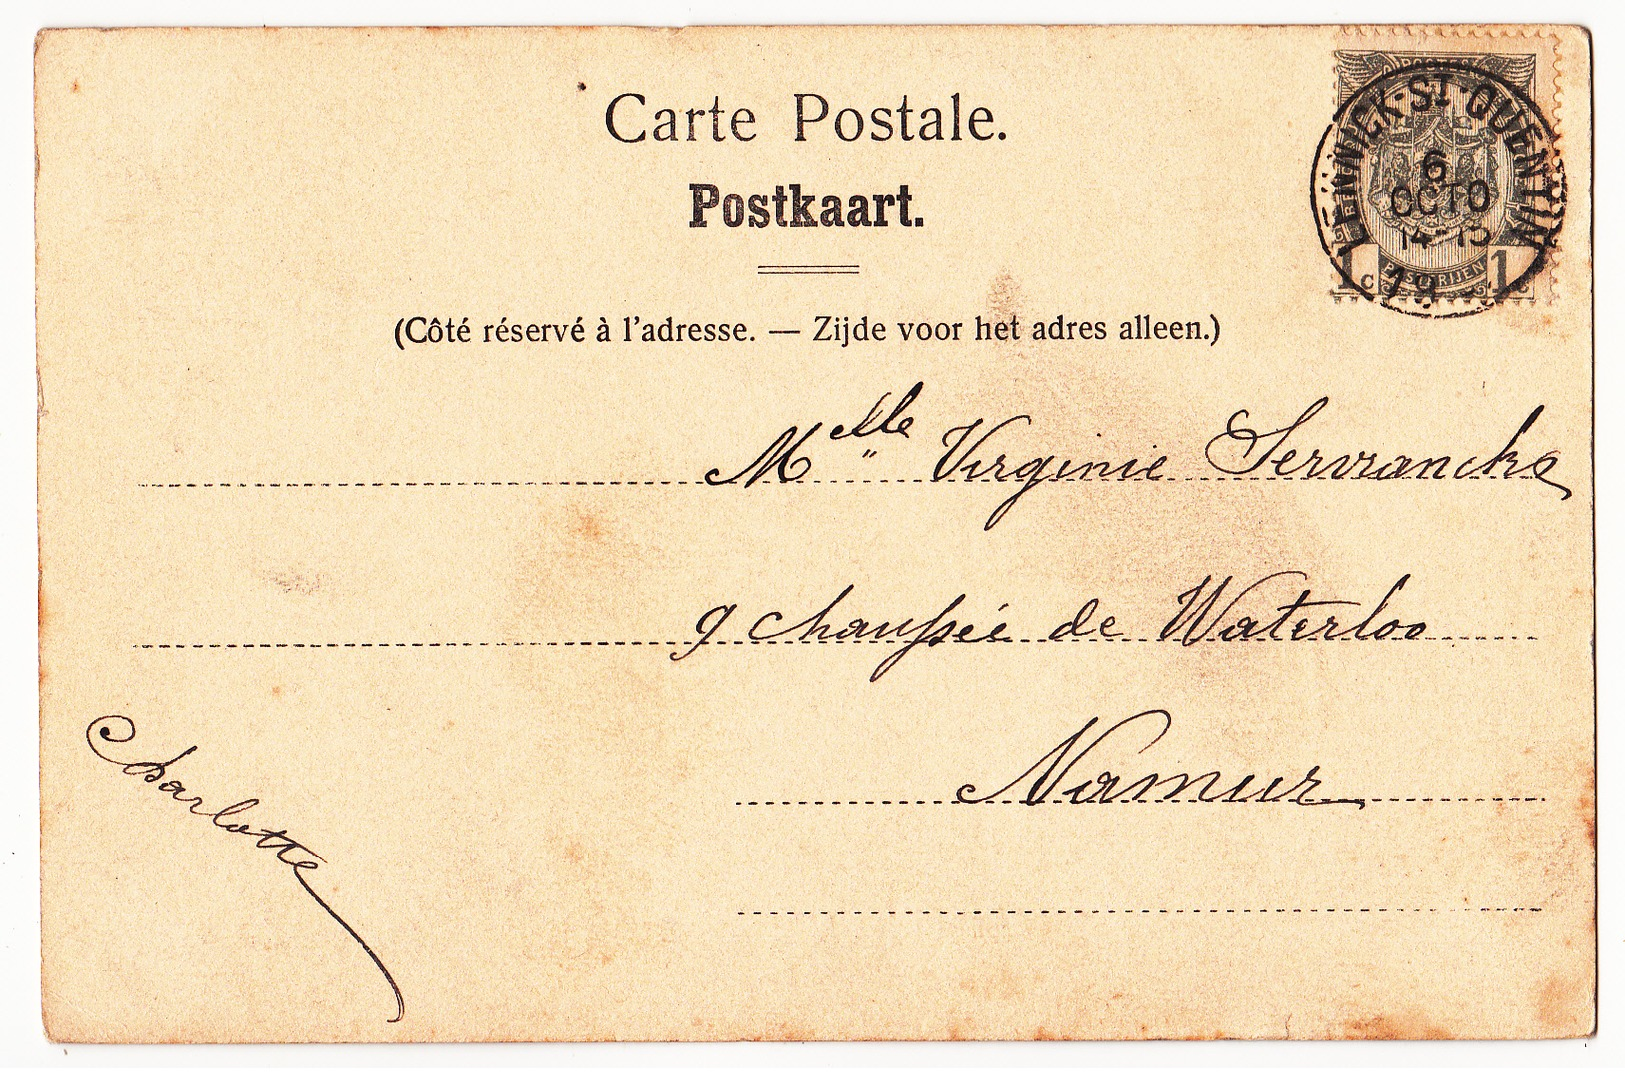 Carte Postale.
Postkaart.
(Côté réservé à l'adresse. — Zijde voor het adres alleen.)
LENNICK-ST-QUENTIN
6
OCTO
14-15
1c 1c
POSTERIJEN
Mlle Virginie Servranckx
9 chaussée de Waterloo
Namur
Charlotte